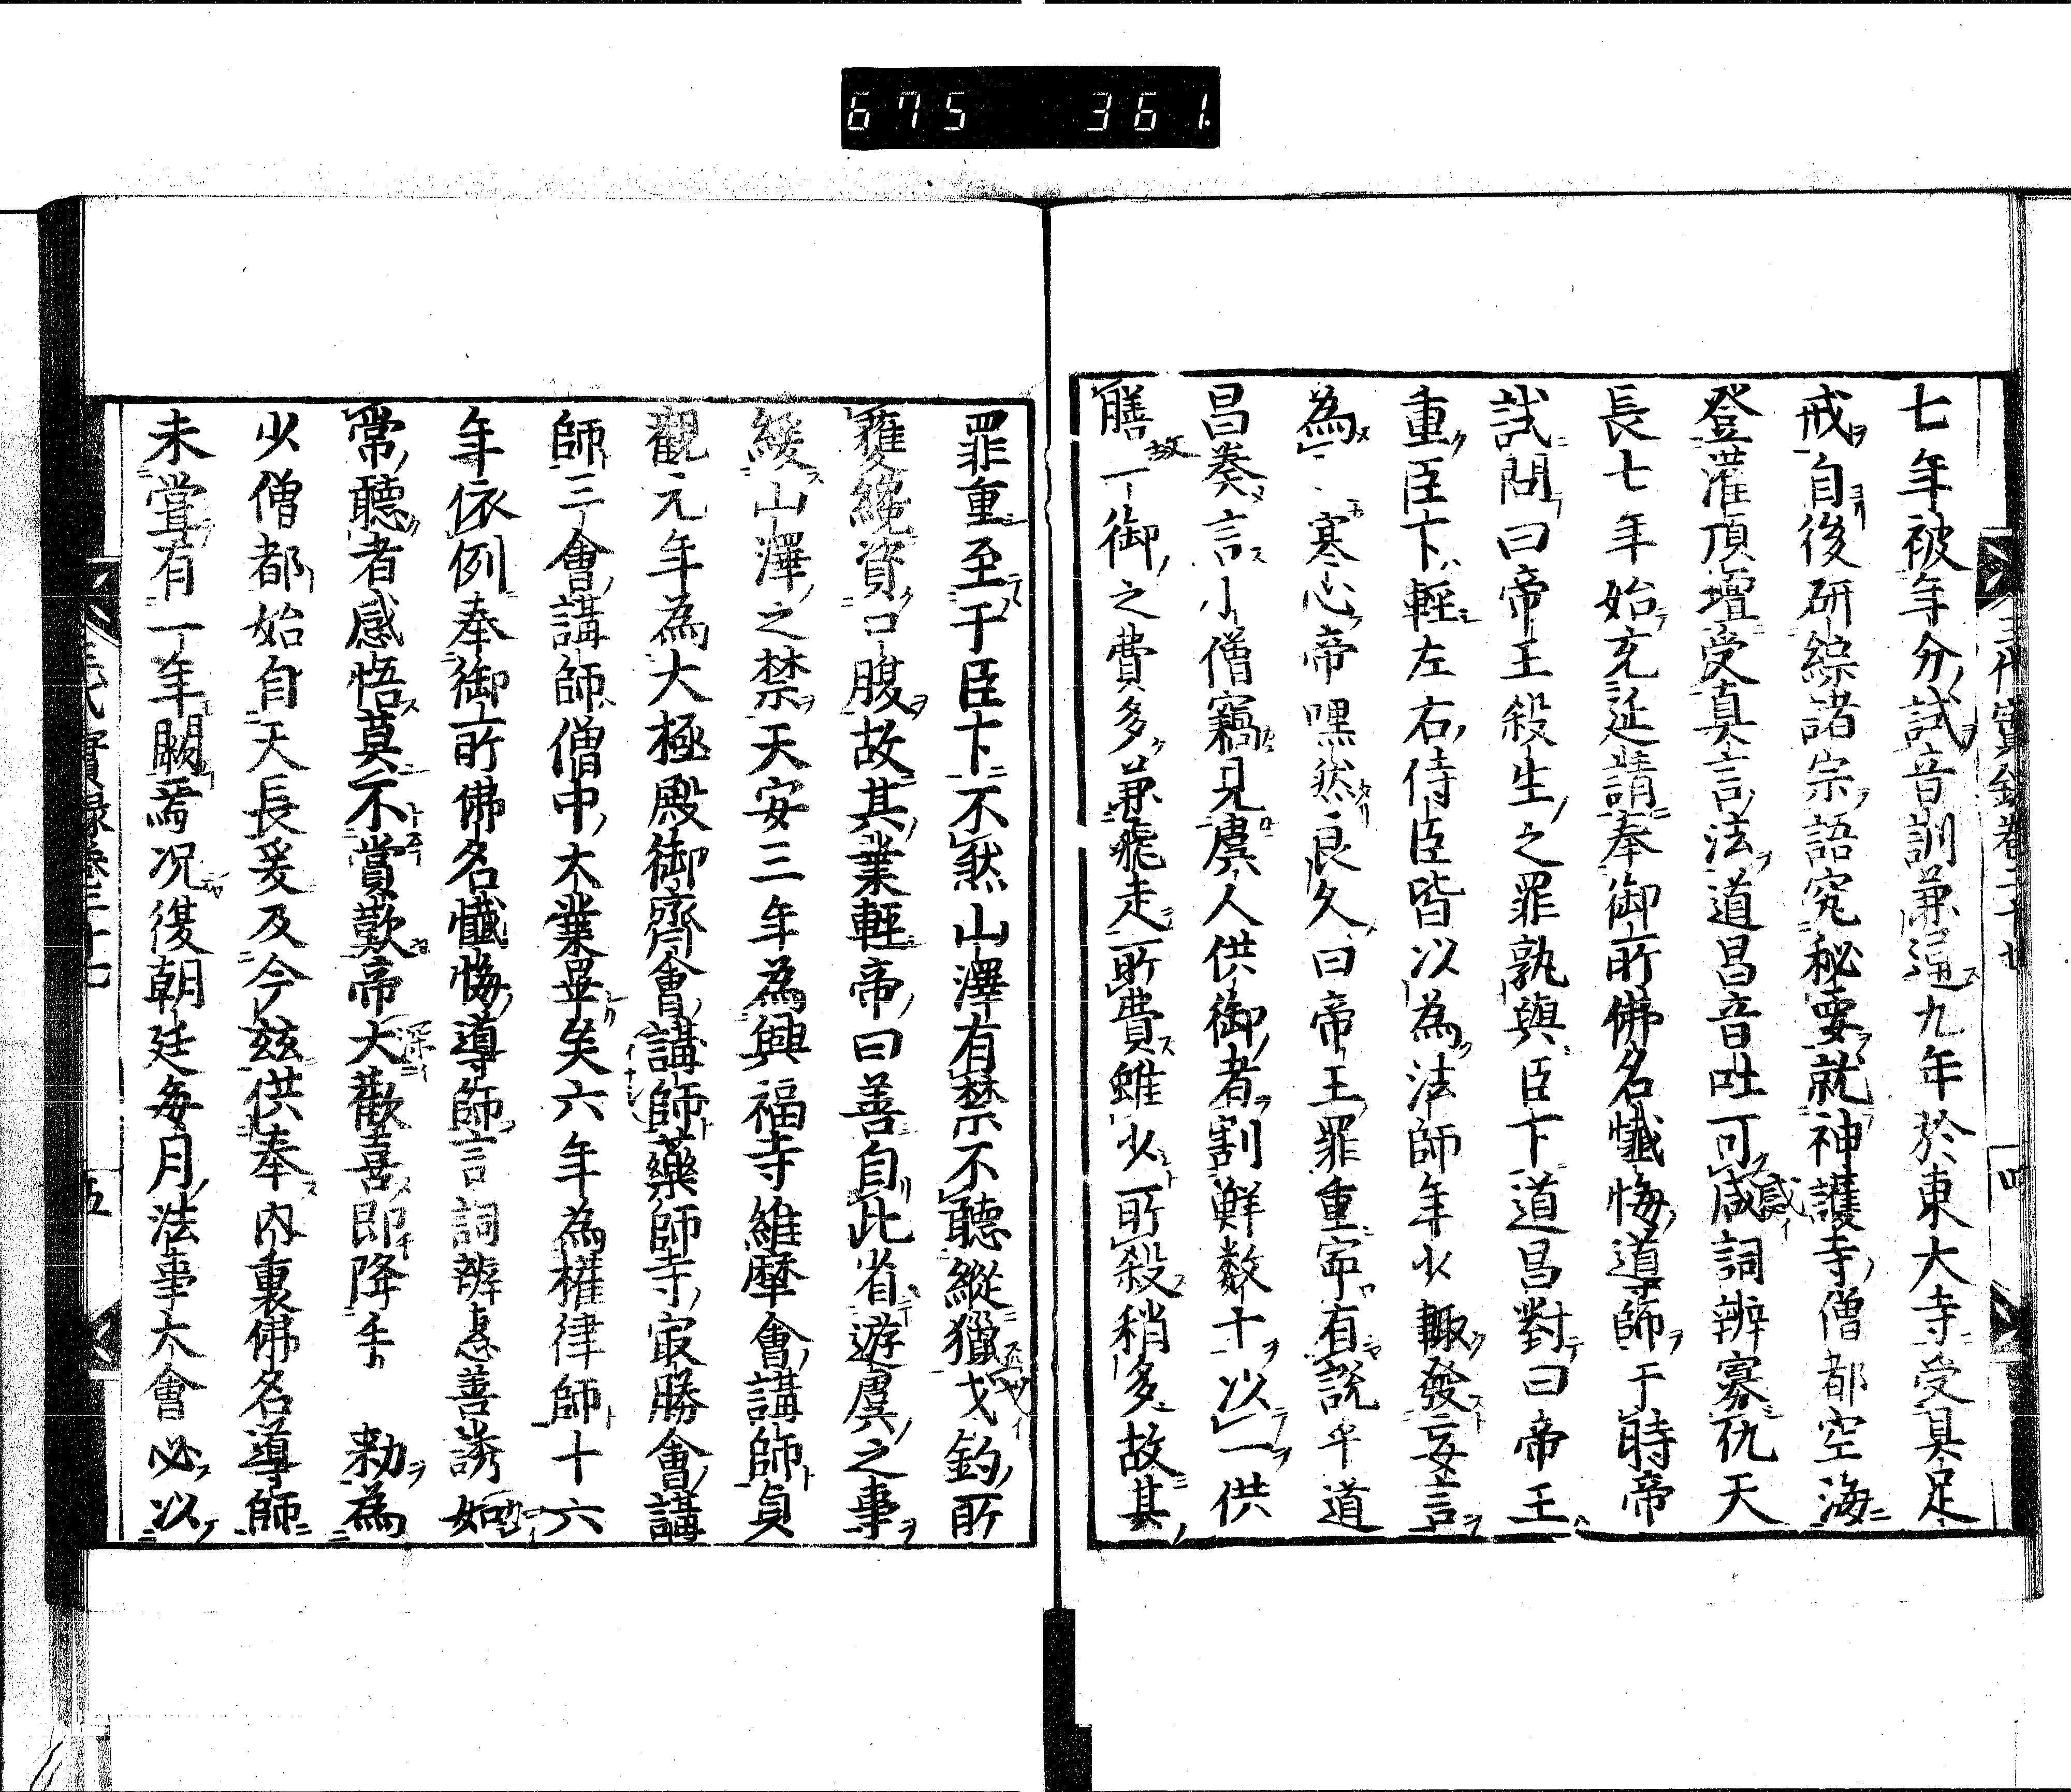 675 361.
七年被年分試音訓兼逼九年於東大寺受具足
戒自後研綜諸宗語究秘要就神護寺僧都空海
登灌頂壇受真言法道昌音吐可咸詞辨寡仇天
長七年始充延請奉御前佛名懺悔導師于時帝
試問曰帝王殺生之罪孰與臣下道昌對曰帝王
重臣下輕左右侍臣皆以為法師年少輙發妄言
為一寒心帝嘿然良久曰帝王罪重寧有說乎道
昌奏言小僧竊見虞人供御者割鮮数十以一供
膳丁御之費多兼飛走所費雖少所殺稍多故其
罪重至于臣下不然山澤有禁不聽縱獵戈釣所
獲纔資口腹故其業輕帝曰善自此省遊虞之事
緩山澤之禁天安三年為興福寺維摩會講師貞
觀元年為大極殿御齋會講師藥師寺㝡勝會講
師三會講師僧中大業畢矣六年為權律師十六
年依例奉御前佛名懺悔導師言詞辨恵善誘如
常聽者感悟莫不賞歎帝大歡喜即降手 勅為
少僧都始自天長爰及今兹供奉內裏佛名導師
未甞有一年闕焉况復朝廷每月法事大會必以
三代實錄卷二十七
五